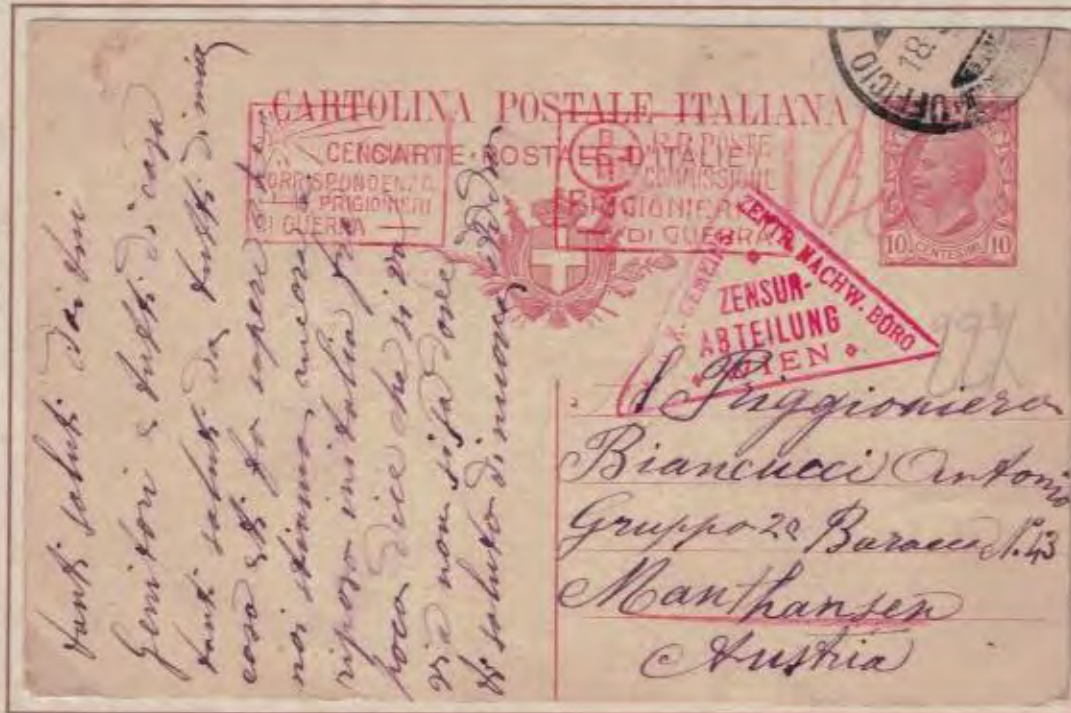 CARTOLINA POSTALE ITALIANA
CARTE POSTALE D'ITALIE
CENSURA
CORRISPONDENZA
PRIGIONIERI
DI GUERRA
R.R. POSTE
COMMISSIONE
PRIGIONIERI
DI GUERRA
UFFICIO
18
10 CENTESIMI 10
K. GEMEINS.
ZENTR. NACHW. BÜRO
ZENSUR-
ABTEILUNG
WIEN
224
Priggioniero
Biancucci Antonio
Gruppo 2a Baracca N. 43
Manthansen
Austria
tanti saluti dai tuoi
Genitori e tutti di casa
tanti saluti da tutti di mia
casa e ti fo sapere che
noi stiamo ancora a
riposo in italia fra
poco dice che si va
via non si sa dove
ti saluto di nuovo addio